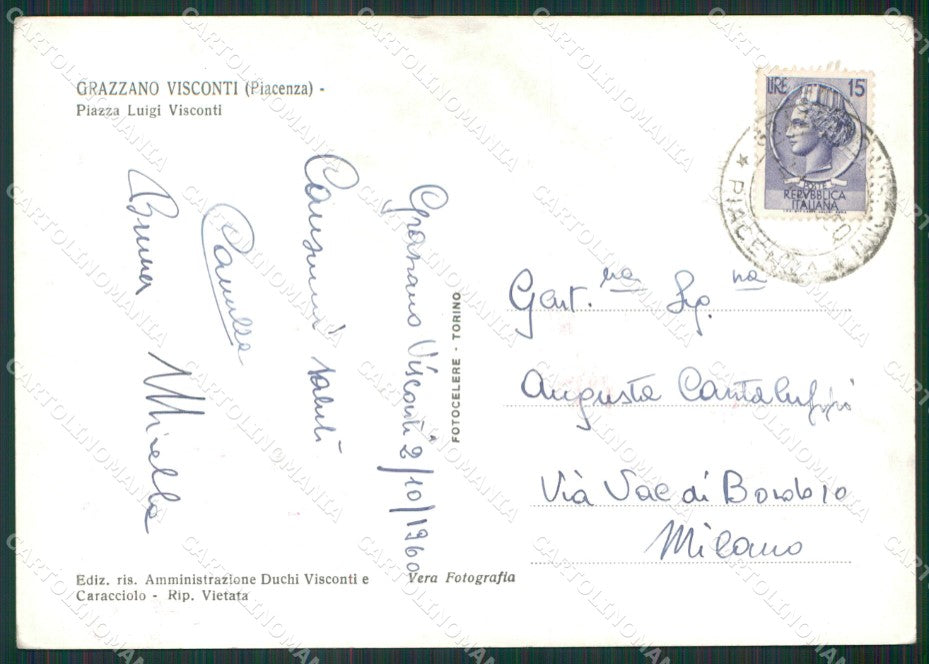 GRAZZANO VISCONTI (Piacenza) -
Piazza Luigi Visconti
Grazzano Visconti 2/10/1960
Carissimi saluti
Camilla
Bruna Mirella
FOTOCELERE - TORINO
LIRE 15
POSTE
REPVBBLICA
ITALIANA
PIACENZA
Gent.ma Sig.na
Augusta Cantaluppi
Via Val di Bondo 10
Milano
Ediz. ris. Amministrazione Duchi Visconti e
Caracciolo - Rip. Vietata
Vera Fotografia
CARTOLINOMANIA